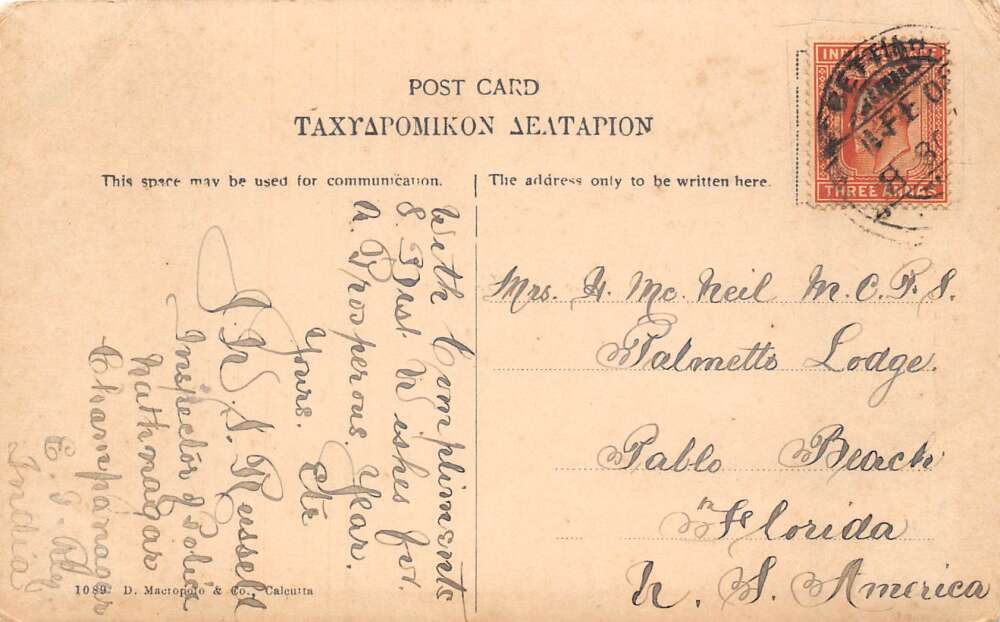 POST CARD
ΤΑΧΥΔΡΟΜΙΚΟΝ ΔΕΛΤΑΡΙΟΝ
This space may be used for communication.
The address only to be written here.
THREE ANNAS
With Compliments
& Best Wishes for
A. Prosperous. Year.
Yours. Etc
J. W. A. Russell
Inspector of Police
Nathnagar
Champanagar
India
Mrs. H. Mc. Neil M.C.P.S.
Palmetto Lodge.
Pablo Beach
Florida
U. S. America
1089. D. Macropolo & Co., Calcutta